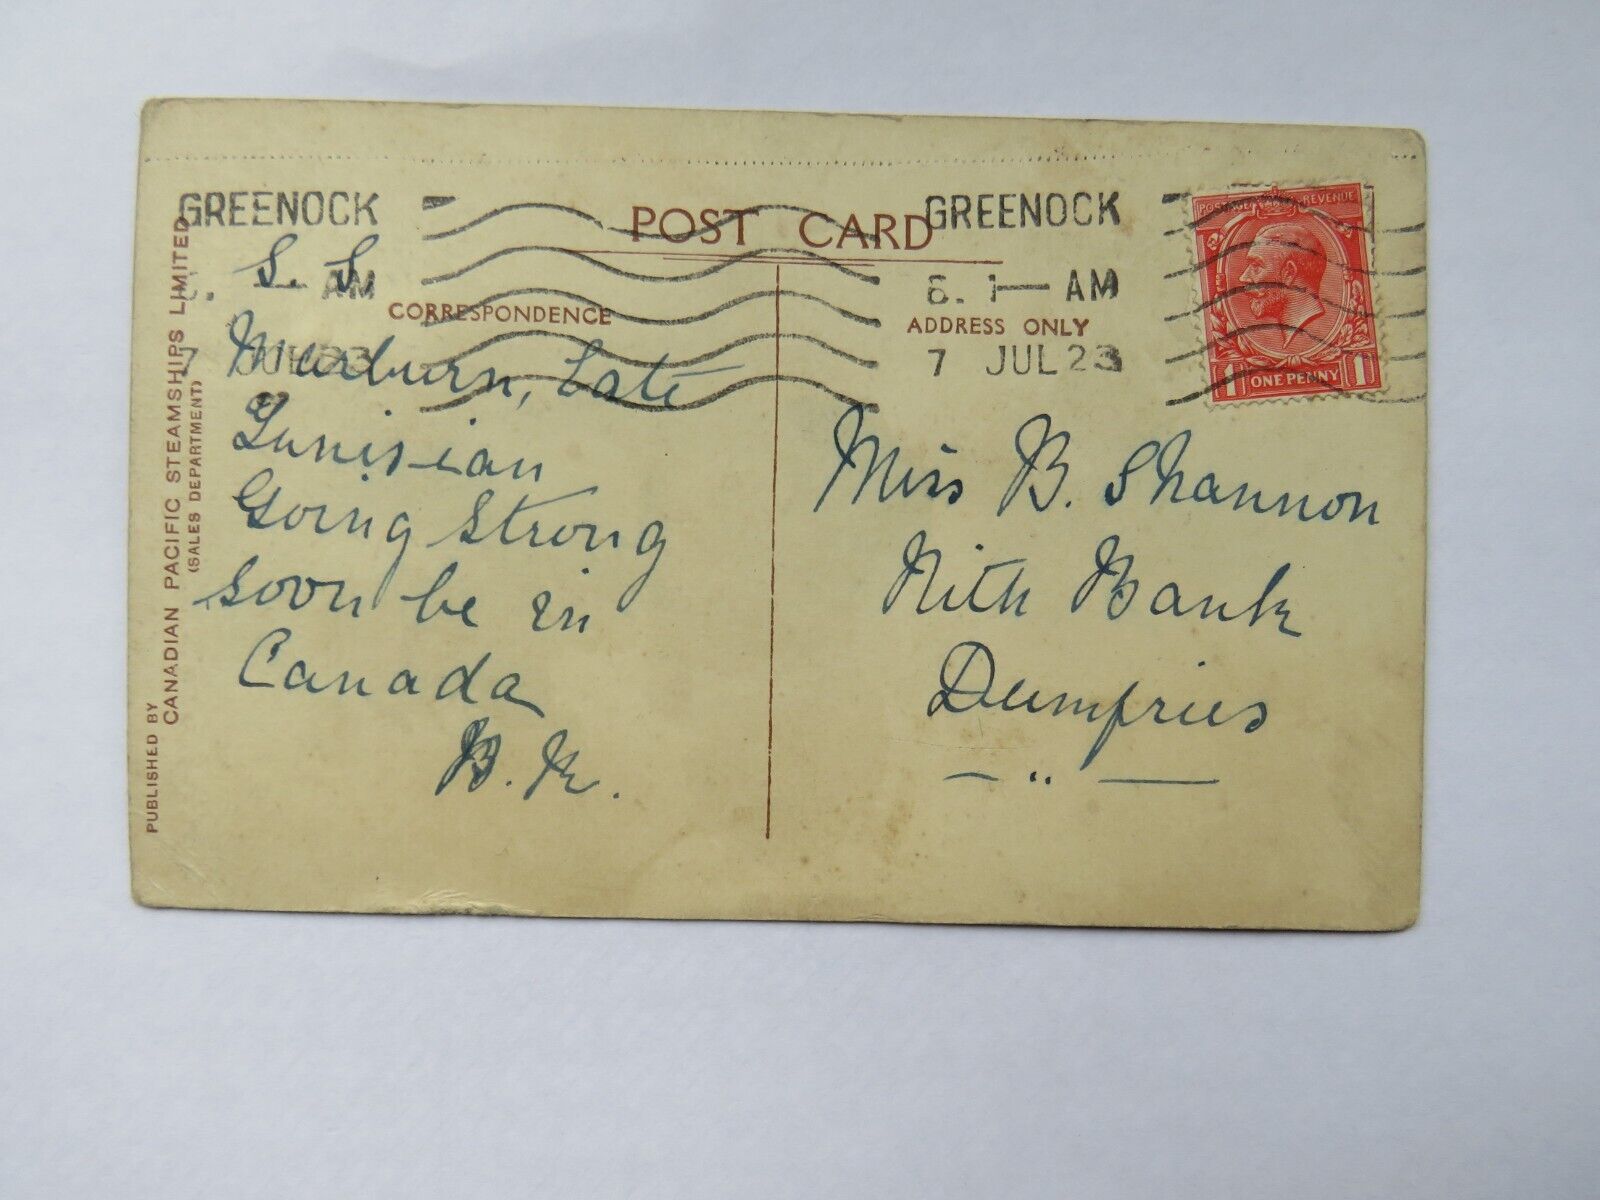 GREENOCK
AM
7 JUL 23
POST CARD
CORRESPONDENCE
GREENOCK
6. 1— AM
7 JUL 23
ADDRESS ONLY
POSTAGE REVENUE
1 ONE PENNY 1
PUBLISHED BY
CANADIAN PACIFIC STEAMSHIPS LIMITED
(SALES DEPARTMENT)
S. S
Marburn, Late
Tunisian
Going Strong
soon be in
Canada
B. K.
Miss B. Shannon
Nith Bank
Dumfries